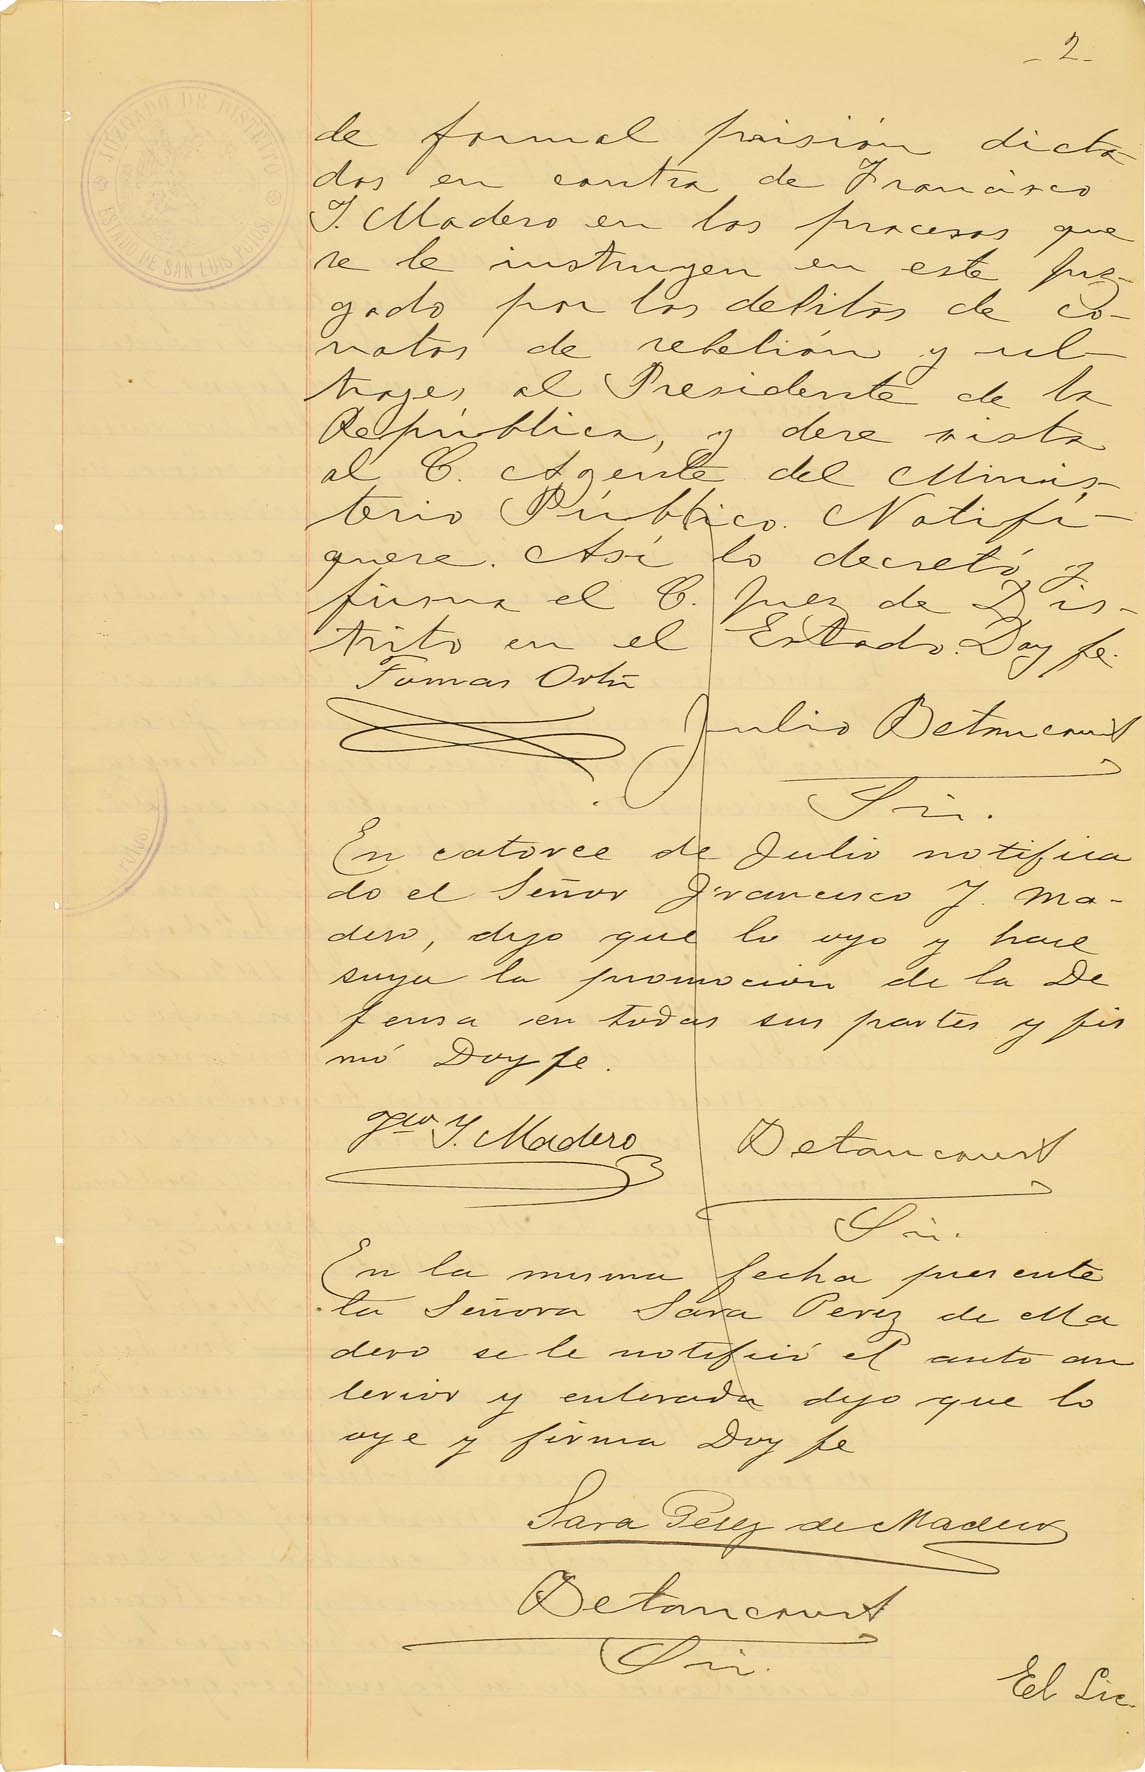 - 2 -
JUZGADO DE DISTRITO
ESTADO DE SAN LUIS POTOSI
de formal prisión dicta
dos en contra de Francisco
I. Madero en los procesos que
se le instruyen en este Juz-
gado por los delitos de co-
natos de rebelión y ul-
trajes al Presidente de la
República, y dese vista
al C. Agente del Minis-
terio Público. Notifí-
quese. Así lo decretó y
firma el C. Juez de Dis-
trito en el Estado. Doy fe.
Tomas Ortiz
Julio Betancourt
Srio.
En catorce de Julio notifica
do el Señor Francisco I. Ma-
dero, dijo que lo oyo y hace
suya la promocion de la De
fensa en todas sus partes y fir
mó Doy fe.
Fco. I. Madero
Betancourt
Srio.
En la misma fecha presente
la Señora Sara Perez de Ma
dero se le notificó el auto an
terior y enterada dijo que lo
oye y firma Doy fe
Sara Pérez de Madero
Betancourt
Srio.
El Lic.
POTOSI